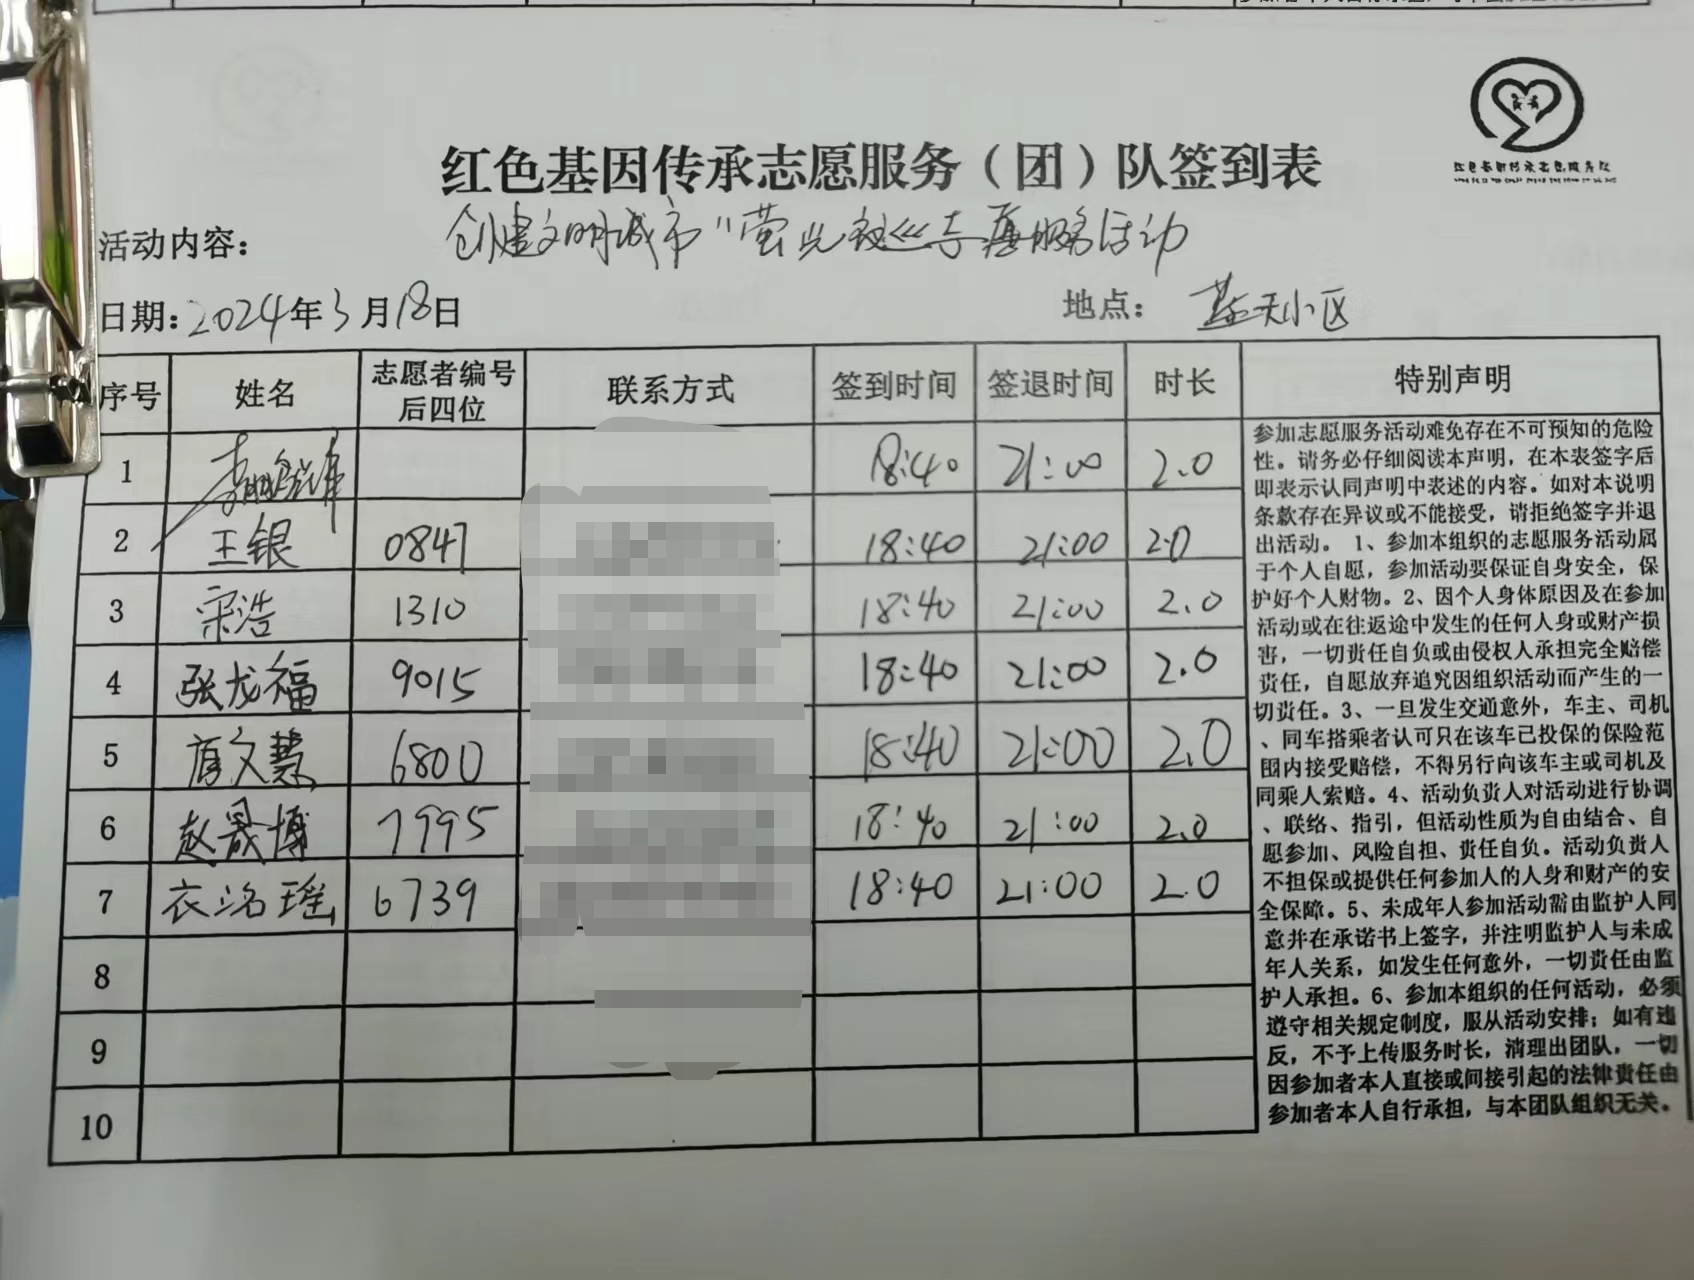 红色基因传承志愿服务（团）队签到表
活动内容： 创建文明城市"萤光夜巡志愿服务活动
日期：2024年3月18日 地点：蓝天小区
序号 姓名 志愿者编号后四位 联系方式 签到时间 签退时间 时长 特别声明
1 18:40 21:00 2.0
2 王银 0847 18:40 21:00 2.0
3 宋浩 1310 18:40 21:00 2.0
4 张龙福 9015 18:40 21:00 2.0
5 文慧 6800 18:40 21:00 2.0
6 赵晟博 7995 18:40 21:00 2.0
7 衣洺瑶 6739 18:40 21:00 2.0
8
9
10
参加志愿服务活动难免存在不可预知的危险
性。请务必仔细阅读本声明，在本表签字后
即表示认同声明中表述的内容。如对本说明
条款存在异议或不能接受，请拒绝签字并退
出活动。 1、参加本组织的志愿服务活动属
于个人自愿，参加活动要保证自身安全，保
护好个人财物。2、因个人身体原因及在参加
活动或在往返途中发生的任何人身或财产损
害，一切责任自负或由侵权人承担完全赔偿
责任，自愿放弃追究因组织活动而产生的一
切责任。3、一旦发生交通意外，车主、司机
、同车搭乘者认可只在该车已投保的保险范
围内接受赔偿，不得另行向该车主或司机及
同乘人索赔。4、活动负责人对活动进行协调
、联络、指引，但活动性质为自由结合、自
愿参加、风险自担、责任自负。活动负责人
不担保或提供任何参加人的人身和财产的安
全保障。5、未成年人参加活动需由监护人同
意并在承诺书上签字，并注明监护人与未成
年人关系，如发生任何意外，一切责任由监
护人承担。6、参加本组织的任何活动，必须
遵守相关规定制度，服从活动安排；如有违
反，不予上传服务时长，清理出团队，一切
因参加者本人直接或间接引起的法律责任由
参加者本人自行承担，与本团队组织无关。